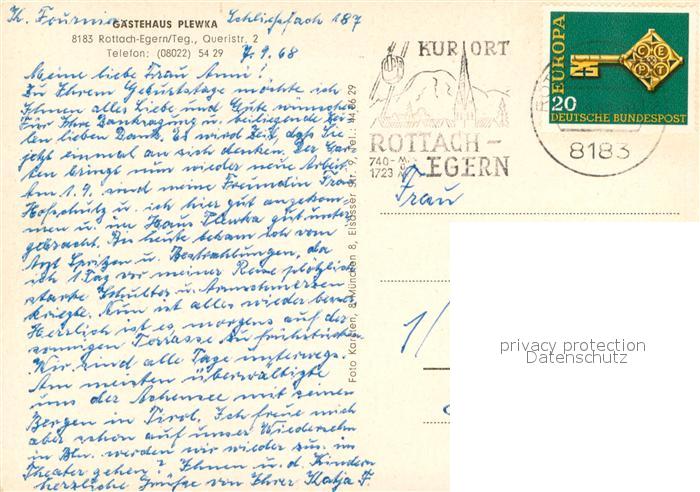 K. Fournier Schließfach 187
GÄSTEHAUS PLEWKA
8183 Rottach-Egern/Teg., Queristr. 2
Telefon: (08022) 54 29
7.9.68
Meine liebe Frau Anni!
Zu Ihrem Geburtstage möchte ich
Ihnen alles Liebe und Gute wünschen
Für Ihre Danksagung u. beiliegende Zei-
len lieben Dank. Es wird Zeit, daß Sie
jetzt einmal an sich denken. Der Gar-
ten bringt nun wieder neue Arbeit.
Am 1.9. sind meine Freundin Frau
u. ich hier gut angekom-
men u. im Haus Plewka gut unter-
gebracht. Bis heute bekam ich vom
Arzt Spritzen u. Bestrahlungen, da
ich 1 Tag vor meiner Reise plötzlich
starke Schulter u. Armschmerzen
kriegte. Nun ist alles wieder
Herrlich ist es morgens auf der
sonnigen Terrasse zu frühstücken
Wir sind alle Tage unterwegs.
Am meisten überwältigte
uns der Achensee mit seinen
Bergen in Tirol. Ich freue mich
aber schon auf unser Wiedersehn
in Bln. werden wir wieder zus. ins
Theater gehen? Ihnen u. d. Kindern
herzliche Grüße von Ihrer Katja F.
Foto Karsten, 8 München 8, Elsässer Str. 9, Tel.: 44 86 29
KURORT
ROTTACH-
EGERN
740-
1723 m
EUROPA
CEPT
20
DEUTSCHE BUNDESPOST
8183
Frau
1/
privacy protection
Datenschutz